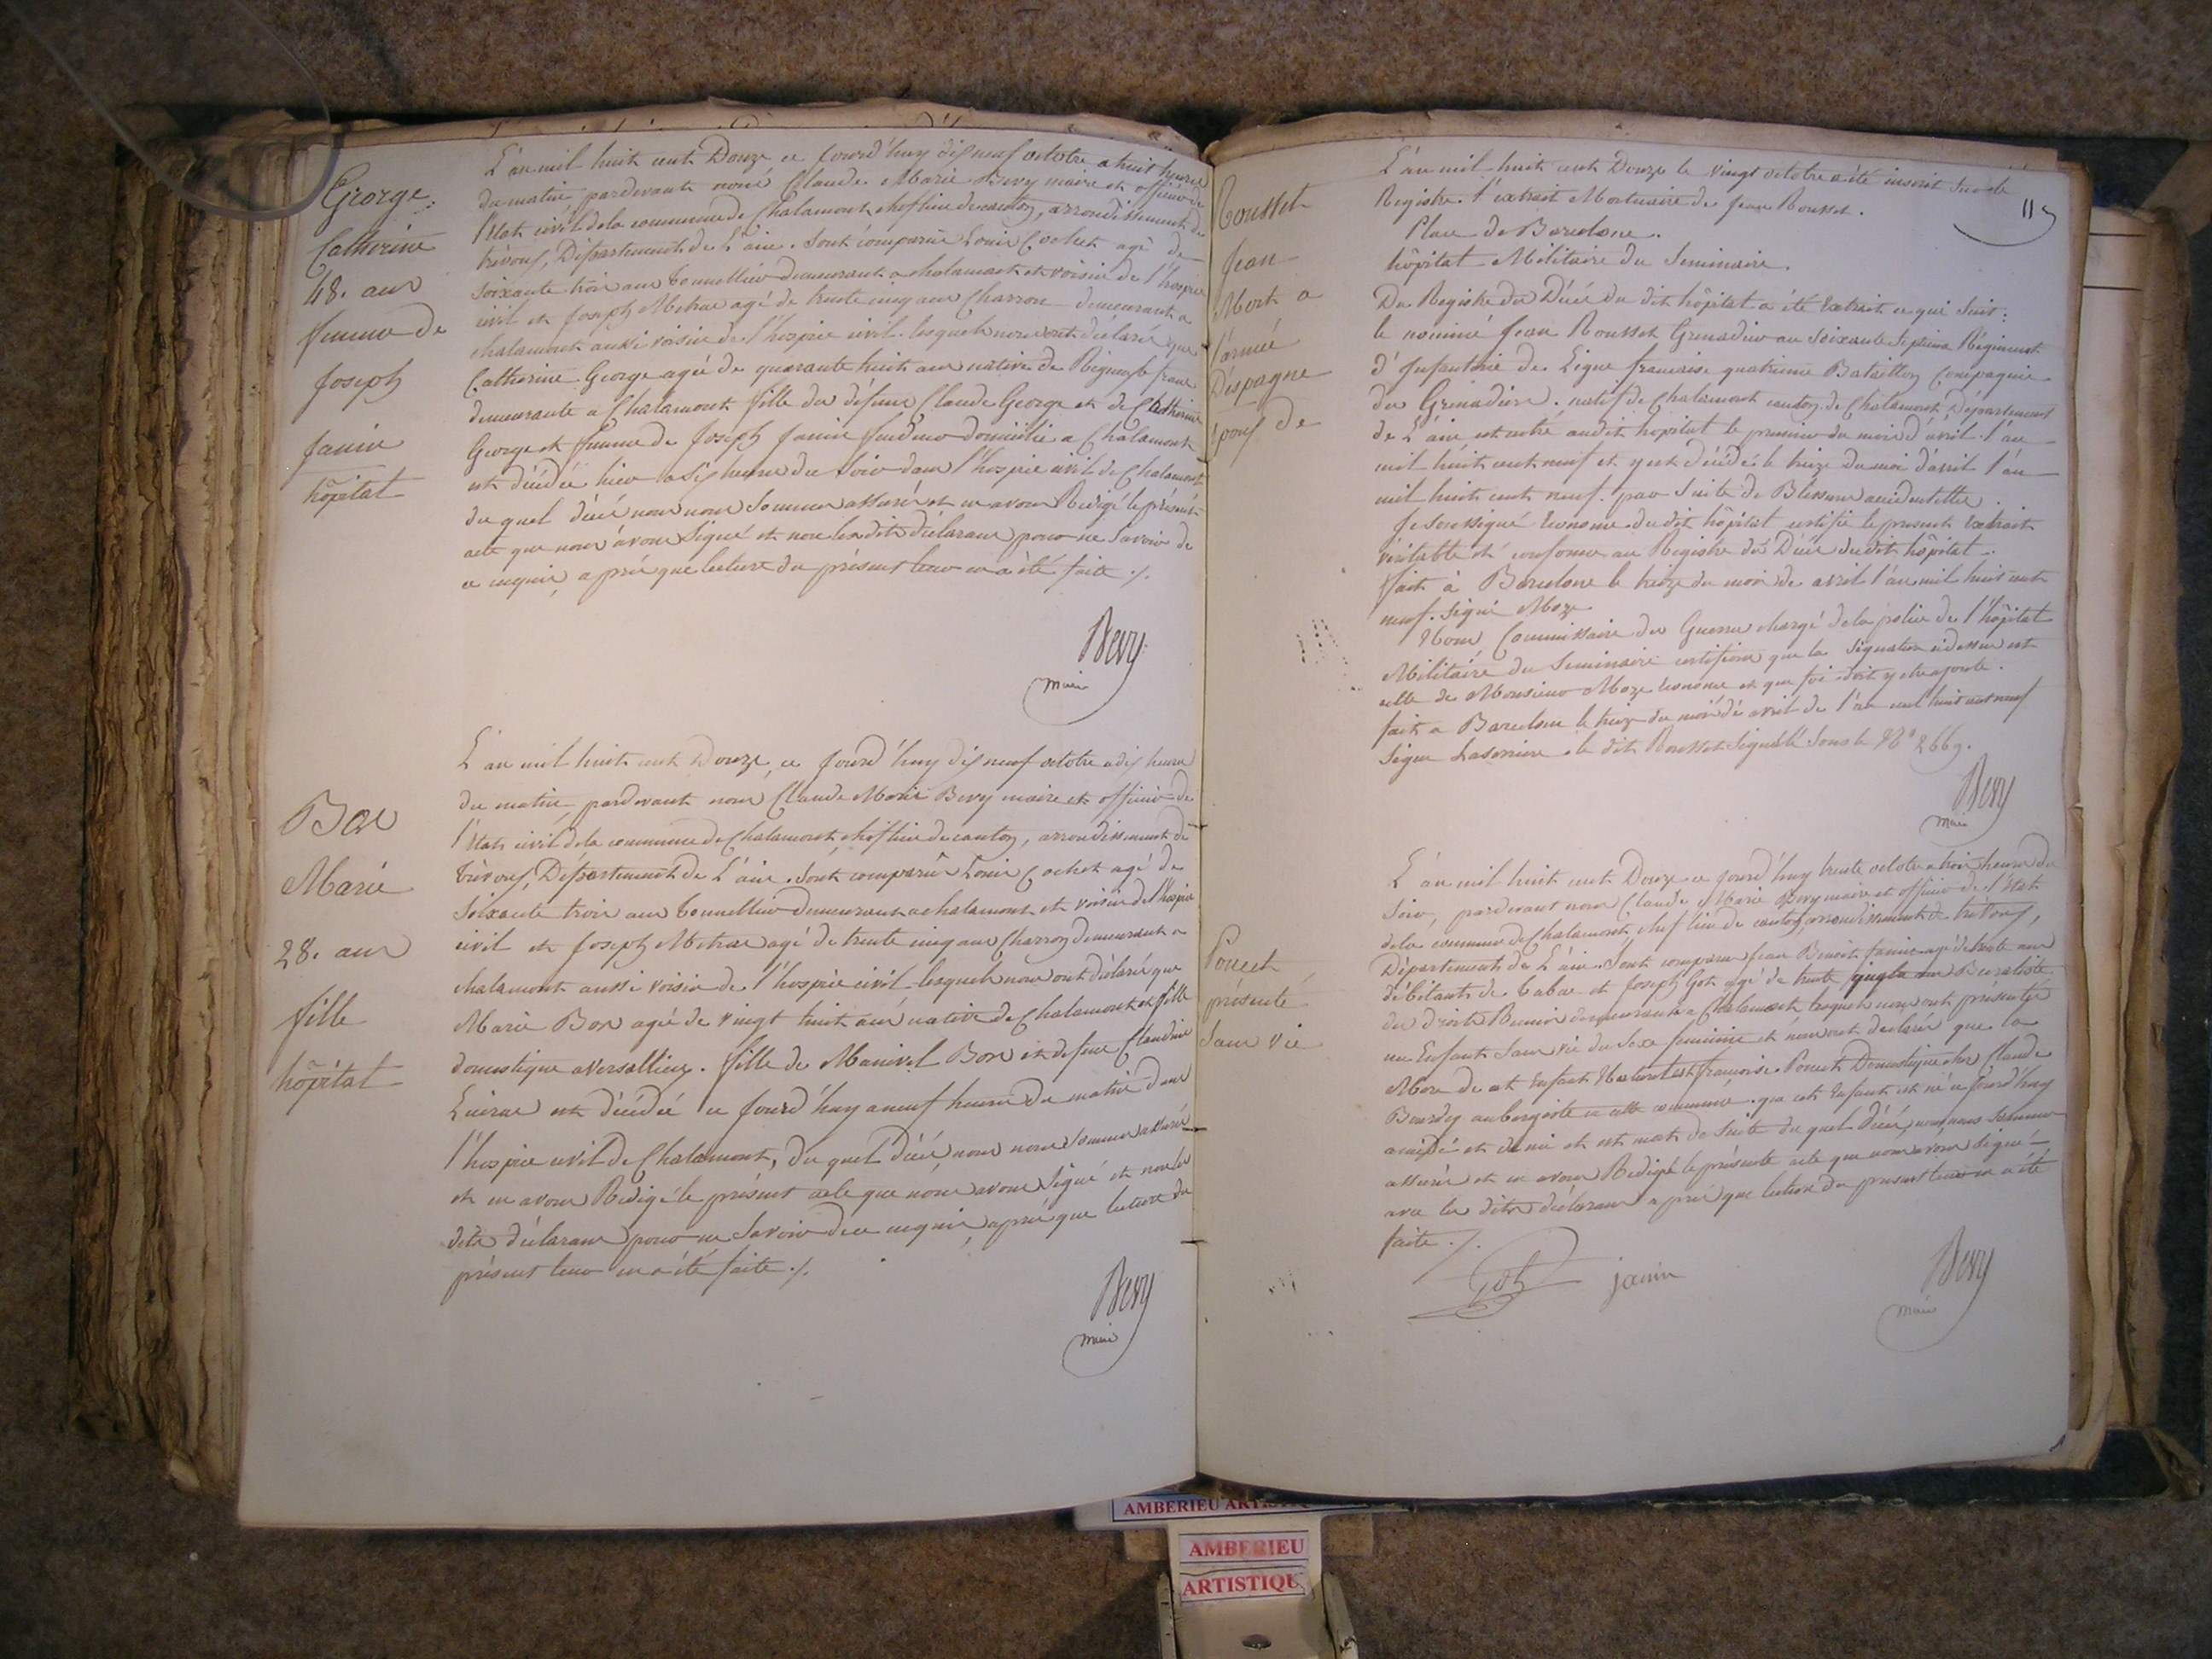 George
Catherine
48. ans
femme de
Joseph
Janin
hôpital
L'an mil huit cent Douze ce jourd'huy dix neuf octobre a huit heures
du matin pardevant nous Claude Marie Bevy maire et officier de
l'Etat civil de la commune de Chalamont chef lieu de canton, arrondissement de
trévoux, Département de L'ain. Sont comparus Louis Cochet agé de
soixante trois ans tonnellier demeurant a chalamont et voisin de l'hospice
civil et Joseph agé de trente cinq ans Charron demeurant a
chalamont aussi voisin de l'hospice civil lesquels nous ont déclaré que
Catherine George agée de quarante huit ans native de franc
demeurante a Chalamont fille du défunt Claude George et de Catherine
George et femme de Joseph Janin domicilié a Chalamont
est décédée hier a six heures du soir dans l'hospice civil de Chalamont
du quel décé nous nous sommes assuré et en avons Redigé le présent
acte que nous avons signé et non les dits déclarans pour ne savoir de
ce enquis, aprés que lecture du présent leur en a été faite ./.
Bevy
maire
Bor
Marie
28. ans
fille
hôpital
L'an mil huit cent Douze, ce jourd'huy dix neuf octobre a dix heures
du matin, pardevant nous Claude Marie Bevy maire et officier de
l'Etat civil de la commune de Chalamont chef lieu de canton, arrondissement de
trévoux, Département de L'ain. Sont comparus Louis Cochet agé de
soixante trois ans tonnellier demeurant a chalamont et voisin de l'hospice
civil et Joseph agé de trente cinq ans Charron demeurant a
chalamont aussi voisin de l'hospice civil lesquels nous ont déclaré que
Marie Bor agée de vingt huit ans native de Chalamont et fille
domestique a Versallieux. fille de Bor et defunte Claudine
est décédée ce jourd'huy a neuf heures du matin dans
l'hospice civil de Chalamont, du quel décé nous nous sommes assuré
et en avons Redigé le présent acte que nous avons signé et non les
dits déclarans pour ne savoir de ce enquis, aprés que lecture du
présent leur en a été faite ./.
Bevy
maire
Rousset
Jean
Mort a
l'armée
D'espagne
époux de
115
L'an mil huit cent Douze le vingt octobre a été inscrit sur le
Registre l'extrait Mortuaire de Jean Rousset.
Place de Barcelone.
hôpital Militaire du Seminaire.
Du Registre des Décés du dit hôpital a été Extrait ce qui suit:
le nommé Jean Rousset Grenadier au soixante Septieme Régiment
d'Infanterie de Ligne française quatrieme Bataillon Compagnie
des Grenadiers. natif de Chalamont canton de Chalamont, Département
de L'ain est entré audit hopital le premier du mois d'avril l'an
mil huit cent neuf et y est décédé le treize du mois d'avril l'an
mil huit cent neuf. par suite de Blessure accidentelle.
Je soussigné Econome du dit hôpital certifie le présent Extrait
véritable et conforme au Registre des Décés du dit hôpital.
fait à Barcelone le treize du mois de avril l'an mil huit cent
neuf. signé Moze
Nous Commissaire des Guerres chargé de la police de l'hôpital
Militaire du Seminaire certifions que la signature ci dessus est
celle de Monsieur Moze Econome et que foi doit y etre ajoutée.
fait a Barcelone le treize du mois de avril de l'an mil huit cent neuf
signé le dit Rousset signalé sous le No 2669.
Bevy
maire
Poncet
présenté
sans vie
L'an mil huit cent Douze ce jourd'huy trente octobre a trois heures du
soir, pardevant nous Claude Marie Bevy maire et officier de l'Etat
de la commune de Chalamont, chef lieu de canton, arrondissement de trévoux,
Département de L'ain. Sont comparus Jean Benoit Janin agé de trente ans
débitant de tabac et Joseph Goh agé de trente ans Buraliste
des droits Reunis demeurants a Chalamont lesquels nous ont présenté
un Enfant sans vie du sexe feminine et nous ont declaré que la
Mere de cet Enfant Naturel est françoise Poncet Domestique chez Claude
aubergiste en cette commune. que cet Enfant est né ce jourd'huy
a midi et demie et est mort de suite du quel Décé, nous nous sommes
assurés et en avons Redigé le présente acte que nous avons signé
avec les dits déclarans aprés que lecture du présent leur en a été
faite ./.
Goh janin
Bevy
maire
AMBERIEU
AMBERIEU
ARTISTIQU